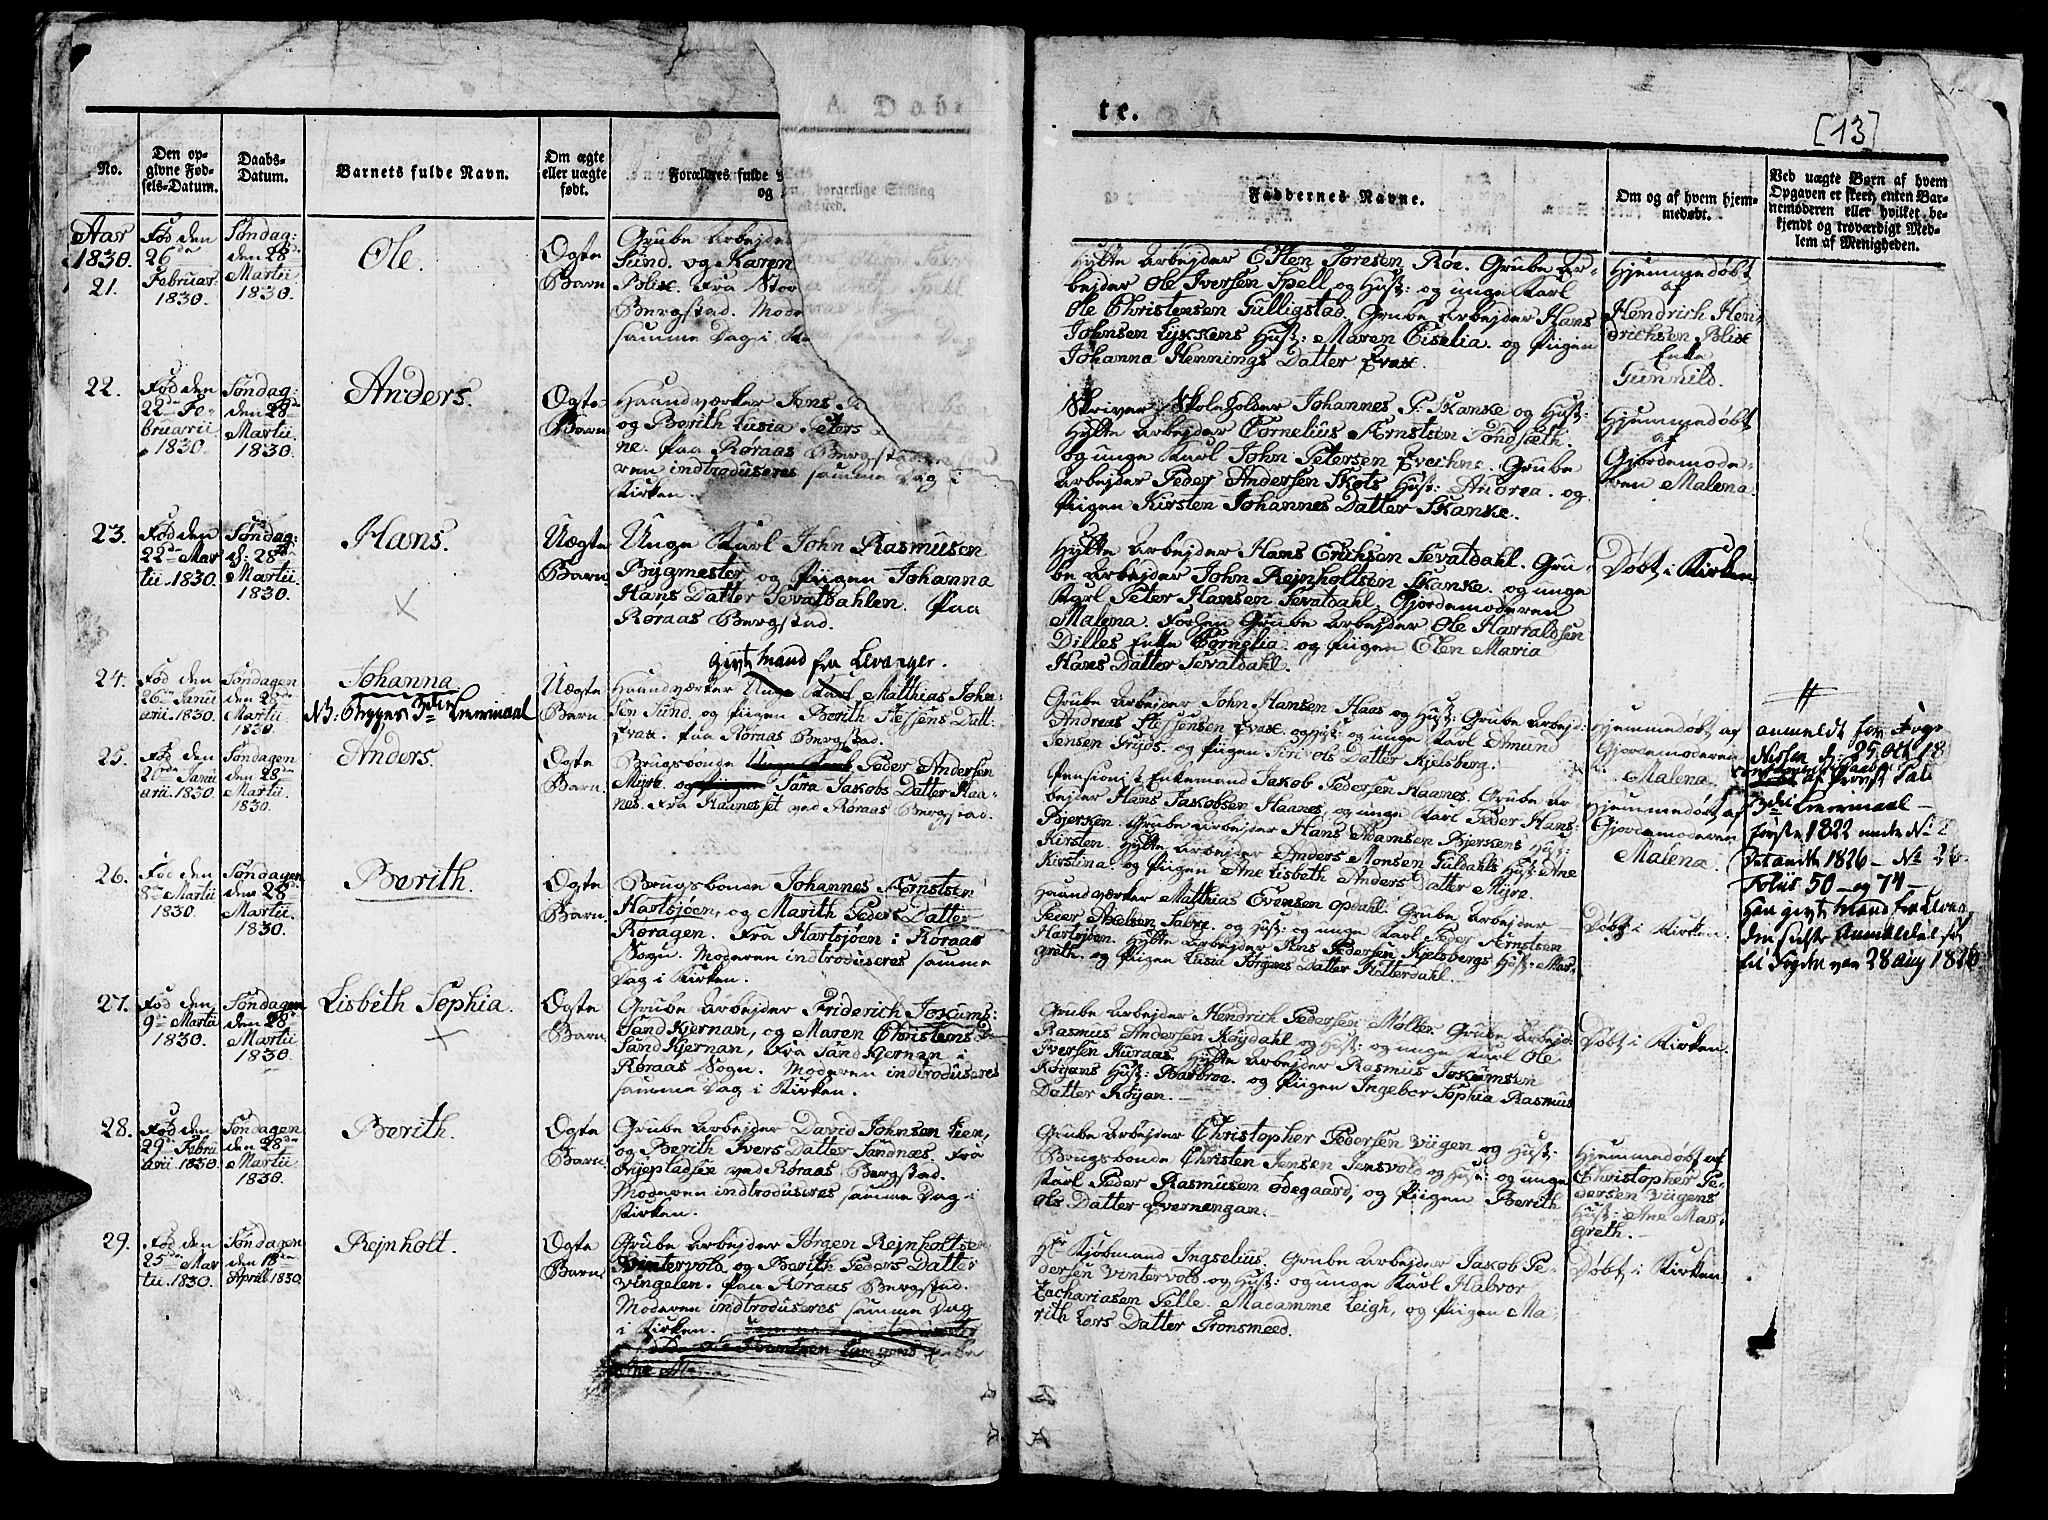 A. Døbte.
[13]
No.
Den opgivne Fødsels-Datum.
Daabs-Datum.
Barnets fulde Navn.
Om ægte eller uægte født.
Forældres fulde
og
Faddernes Navne.
Om og af hvem hjemmedøbt.
Ved uægte Børn af hvem Opgaven er skeet, enten Barnemoderen eller hvilket bekjendt og troværdigt Medlem af Menigheden.
Aar
1830.
21.
Fød den
26de
Februar.
1830.
Søndag:
den 28de
Martii
1830.
Ole.
Ægte
Barn
Grube Arbejder
Sund. og Karen
Polix. Fra Stor
Bergstad. Mode
samme Dag i
Hytte Arbejder Esten Toresen Røe. Grube Ar-
bejder Ole Iversen Spell og Hust: og unge Karl
Ole Christensen Gulligstad. Grube Arbejder Hans
Johnsen Lykkens Hust: Maren Giselia. og Piigen
Johanna Hemmings Datter Evax.
Hjemmedøbt
af
Hendrich Hen
drichsen Polix
Enke
Gunhild.
22.
Fød den
22de Fe-
bruarii
1830.
Søndag:
den 28de
Martii
1830.
Anders.
Ægte
Barn
Haandværker Jens
og Berith Lusia Peters
ne. paa Røraas Bergstad
ren indtroduseres samme Dag i
Kirken.
Skriver Skoleholder Johannes P. Skanke og Hust:
Hytte Arbejder Cornelius Ærnstsen Tondsæth.
og unge Karl John Petersen Evechne. Grube
Arbejder Peder Andersen Skots Hust: Andrea. og
Piigen Kirsten Johannes Datter Skanke.
Hjemmedøbt
af
Gjordemode-
ren Malena.
23.
Fød den
22de Mar
tii 1830.
Søndag:
d: 28de
Martii
1830.
Hans.
Uægte
Barn.
Unge Karl John Rasmusen
Bygmester og Piigen Johanna
Hans Datter Sevatdahlen. Paa
Røraas Bergstad.
Hytte Arbejder Hans Erichsen Sevatdahl. Gru-
be Arbejder John Rejnholtsen Skanke. og unge
Karl Peter Hansen Sevatdahl. Gjordemoderen
Malena. Forhen Grube Arbejder Ole Harraldsen
Dilles Enke Cornelia. og Piigen Elen Maria
Hans Datter Sevatdahl.
Døbt i Kirken
givt Mand fra Levanger.
24.
Fød den
26de Janu
arii. 1830.
Søndagen
den 28de
Martii
1830.
Johanna
NB. Begges 3die Leiermaal
Uægte
Barn.
Haandværker Unge Karl Matthias John-
sen Sund. og Piigen Berith Steffens Datt-
Evax. paa Røraas Bergstad.
Grube Arbejder John Hansen Haas og Hust: Grube Arbejd:
Andreas Steffensen Evax og Hust: og unge Karl Amund
Jensen Tryds. og Piigen Siri Ols Datter Kjelsberg.
Hjemmedøbt af
Gjordemoderen
Malena.
anmeldt for Foge
Nissen dj 25 Oct 18
3die Leiermaal –
første 1822 under No 2
det andet 1826 – No 26
Folüs 50 – og 74 –
Han givt Mand fra Leva
den sidste Anmeldel
til Fogden var 28 aug 1826
25.
Fød den
26de Janu
arii. 1830.
Søndagen
den 28de
Martii
1830.
Anders.
Ægte
Barn.
Brugsbonde Unge Karl Peder Andersen
Myre. og Piigen Sara Jakobs Datter Haa-
nes. Fra Haanesset ved Røraas Bergstad.
Pensionist Enkemand Jakob Pedersen Haanes. Grube Ar
bejder Hans Jakobsen Haanes, og unge Karl Peder Hans:
Bjerken. Grube Arbejder Hans Adamsen Bjerkens Hust:
Kirsten. Hytte Arbejder Anders Monsen Guldahls Hust: Ane
Kirstina. og Piigen Ane Lisbeth Anders Datter Myre.
Hjemmedøbt af
Gjordemoderen
Malena.
26.
Fød den
8de Martii
1830.
Søndagen
den 28de
Martii
1830.
Berith.
Ægte
Barn.
Brugsbonde Johannes Ærnstsen
Hartsjøen, og Marith Peders Datter
Røragen. Fra Hartsjøen i Røraas
Sogn. Moderen indtroduseres samme
Dag i Kirken.
Haandværker Matthias Evensen Opdahl. Grube Arbejder
Peder Axelsen Sabre. og Hust: og unge Karl Peder Ærnstsen
Hartsjøen. Hytte Arbejder Jens Pedersen Kjelsbergs Hust: Mar-
greth. og Piigen Lusia Jørgens Datter Hitterdahl.
Døbt i Kirken.
27.
Fød den
9de Martii
1830.
Søndagen
den 28de
Martii
1830.
Lisbeth Sophia.
Ægte
Barn.
Grube Arbejder Friderich Jokums:
Sand Kjernan, og Maren Christens D
Sand Kjernan, Fra Sand Kjernan i
Røraas Sogn. Moderen indtroduseres
samme Dag i Kirken.
Grube Arbejder Hendrich Pedersen Møller. Grube Arbejd:
Rasmus Andersen Køydahl og Hust: og unge Karl Ole
Iversen Auraas. Hytte Arbejder Rasmus Jokumsen
Køyans Hust: Barbroe. og Piigen Ingeber Sophia Rasmus
Datter Køyan.
Døbt i Kirken.
28.
Fød den
29de Febru
arii. 1830.
Søndagen
den 28de
Martii
1830.
Berith.
Ægte
Barn.
Grube Arbejder David Johnsen Lien,
og Berith Ivers Datter Sandnæs. Fra
Nyepladsen ved Røraas Bergstad.
Moderen indtroduseres samme Dag i
Kirken.
Grube Arbejder Christopher Pedersen Viigen og Hust:
Brugsbonde Christen Jensen Jensvold og Hust: og unge
Karl Peder Rasmusen Ødegaard, og Piigen Berith
Ols Datter Evernengan.
Hjemmedøbt af
Christopher Pe-
dersen Viigens
Hust: Ane Mar-
greth.
29.
Fød den
25de Mar
tii. 1830.
Søndagen
den 18de
April 1830.
Rejnholt.
Ægte
Barn.
Grube Arbejder Jørgen Rejnholtsen
Vintervold og Berith Peders Datter
Vingelen. paa Røraas Bergstad.
Moderen indtroduseres samme Dag
i Kirken.
Hr Kjøbmand Ingselius. Grube Arbejder Jakob Pe-
dersen Vintervold. og Hust: og unge Karl Halvor
Zachariasen Selle. Madamme Leigh, og Piigen Ma-
rith Lars Datter Tronsmeed.
Døbt i Kirken